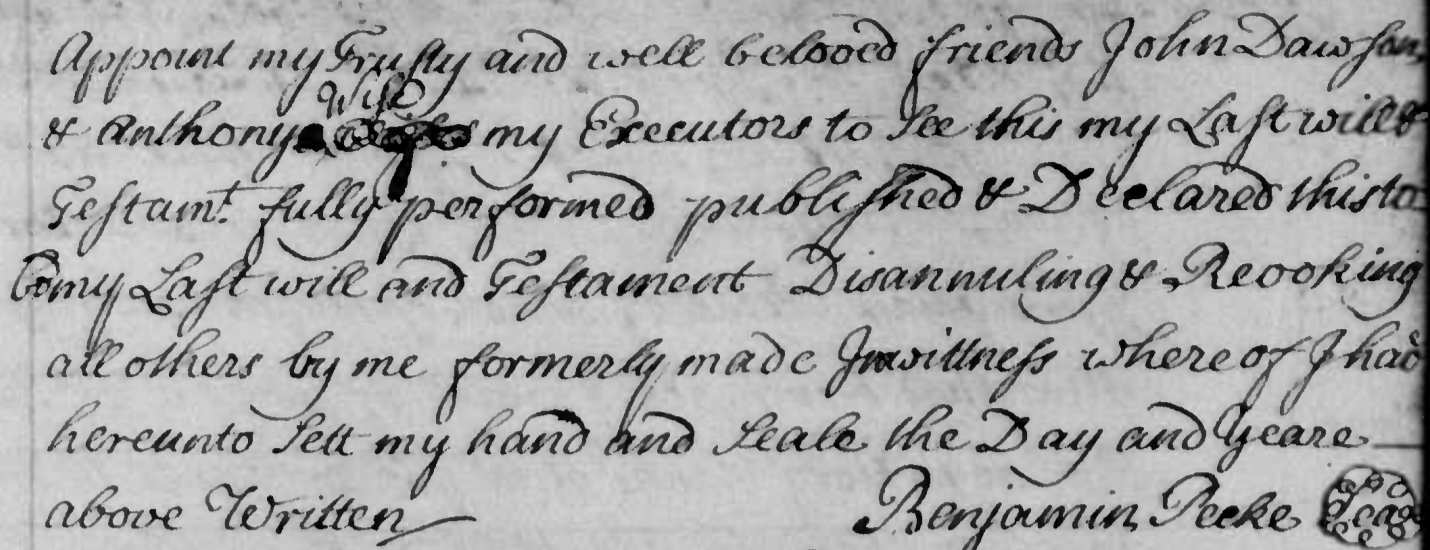 Appoint my Trusty and well beloved friends John Dawson
& Anthony Wise my Executors to See this my Last will &
Testamt. fully performed published & Declared this to
be my Last will and Testament Disannuling & Revoking
all others by me formerly made In wittness where of I have
hereunto Sett my hand and Seale the Day and Yeare
above Written Benjamin Pecke Seal